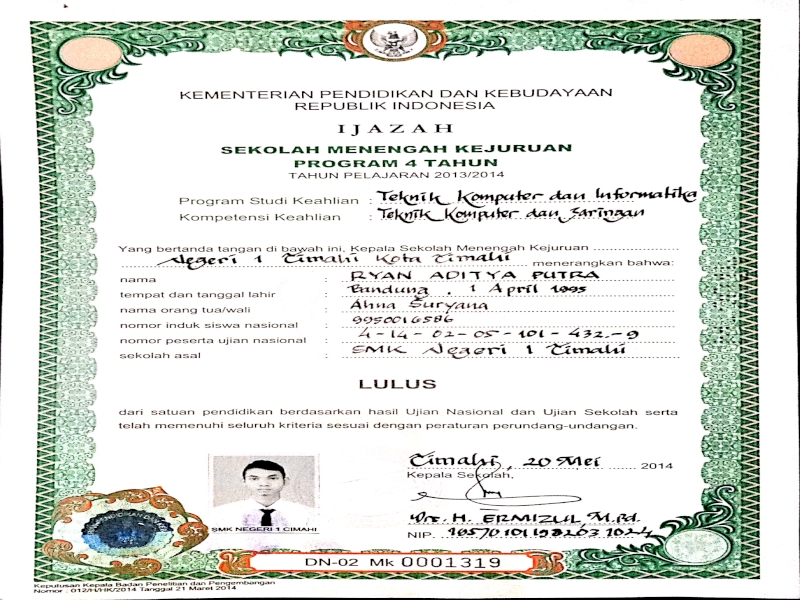 KEMENTERIAN PENDIDIKAN DAN KEBUDAYAAN
REPUBLIK INDONESIA
IJAZAH
SEKOLAH MENENGAH KEJURUAN
PROGRAM 4 TAHUN
TAHUN PELAJARAN 2013/2014
Program Studi Keahlian : Teknik Komputer dan Informatika
Kompetensi Keahlian : Teknik Komputer dan Jaringan
Yang bertanda tangan di bawah ini, Kepala Sekolah Menengah Kejuruan
Negeri 1 Cimahi Kota Cimahi menerangkan bahwa:
nama : RYAN ADITYA PUTRA
tempat dan tanggal lahir : Bandung, 1 April 1995
nama orang tua/wali : Ahna Suryana
nomor induk siswa nasional : 9950016586
nomor peserta ujian nasional : 4-14-02-05-101-432-9
sekolah asal : SMK Negeri 1 Cimahi
LULUS
dari satuan pendidikan berdasarkan hasil Ujian Nasional dan Ujian Sekolah serta
telah memenuhi seluruh kriteria sesuai dengan peraturan perundang-undangan.
Cimahi, 20 Mei 2014
Kepala Sekolah,
SMK NEGERI 1 CIMAHI
Drs. H. ERMIZUL, M.Pd.
NIP.
DN-02 Mk 0001319
Keputusan Kepala Badan Penelitian dan Pengembangan
Nomor : 012/H/HK/2014 Tanggal 21 Maret 2014